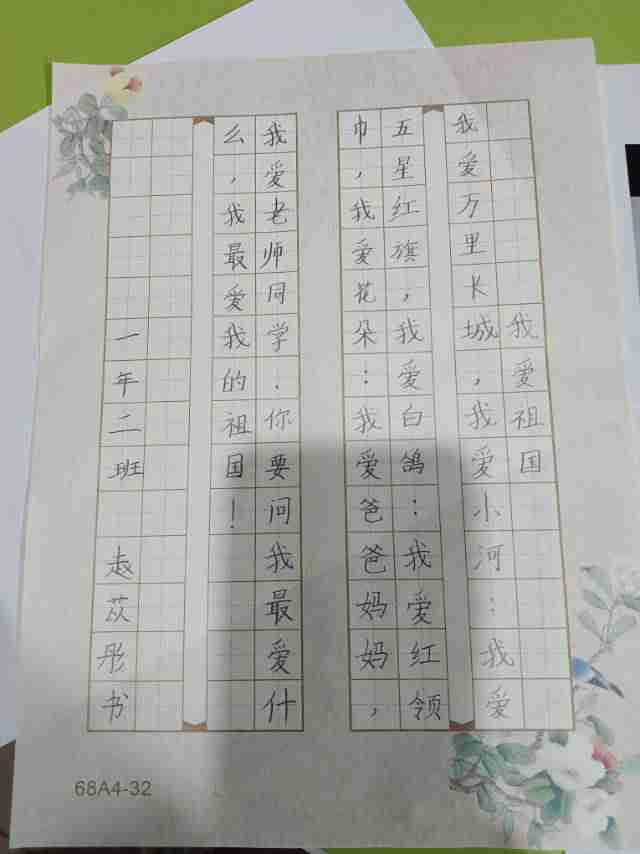 我爱祖国
我爱万里长城，我爱小河：我爱
五星红旗，我爱白鸽：我爱红领
巾，我爱花朵：我爱爸爸妈妈，
我爱老师同学：你要问我最爱什
么，我最爱我的祖国！
一年二班 赵苡彤书
68A4-32